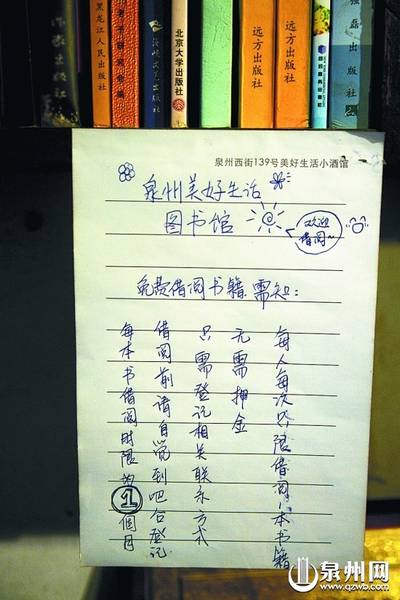 黑龙江人民出版社
北京大学出版社
远方出版社
远方出版社
出版社
泉州西街139号美好生活小酒馆
泉州美好生活
图书馆
欢迎
借阅~
免费借阅书籍需知：
每人每次只限借阅1本书籍
无需押金
只需登记相关联系方式
借阅前请自觉到吧台登记
每本书借阅时限为1个月
泉州网
www.qzwb.com